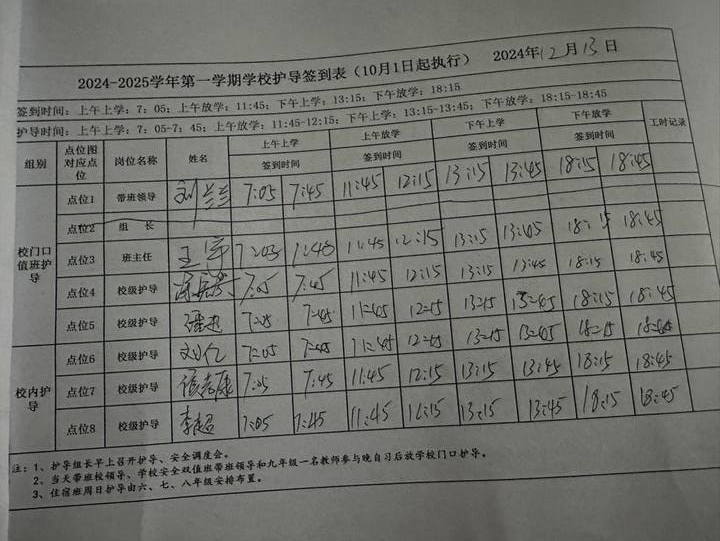 2024-2025学年第一学期学校护导签到表（10月1日起执行） 2024年12月13日
签到时间：上午上学：7：05；上午放学：11:45；下午上学：13:15；下午放学：18:15
护导时间：上午上学：7:05-7：45；上午放学：11:45-12:15；下午上学：13:15-13:45；下午放学：18:15-18:45
组别 点位图对应点位 岗位名称 姓名 上午上学 上午放学 下午上学 下午放学 工时记录
签到时间 签到时间 签到时间 签到时间
校门口值班护导
点位1 带班领导 刘兰兰 7:05 7:45 11:45 12:15 13:15 13:45 18:15 18:45
点位2 组长
点位3 班主任 王宇 7:03 7:48 11:45 12:15 13:15 13:45 18:15 18:45
点位4 校级护导 7:05 7:45 11:45 12:15 13:15 13:45 18:15 18:45
点位5 校级护导 7:05 7:45 11:45 12:15 13:15 13:45 18:15 18:45
校内护导
点位6 校级护导 刘仁 7:05 7:45 11:45 12:15 13:15 13:45 18:15 18:45
点位7 校级护导 7:05 7:45 11:45 12:15 13:15 13:45 18:15 18:45
点位8 校级护导 李超 7:05 7:45 11:45 12:15 13:15 13:45 18:15 18:45
注：1、护导组长早上召开护导、安全调度会。
2、当天带班校领导、学校安全双值班带班领导和九年级一名教师参与晚自习后放学校门口护导。
3、住宿班周日护导由六、七、八年级安排布置。